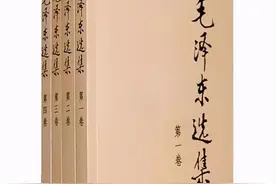 毛泽东选集
第四卷
毛泽东选集
第三卷
毛泽东选集
第二卷
毛泽东选集
第一卷
毛泽东选集
第一卷